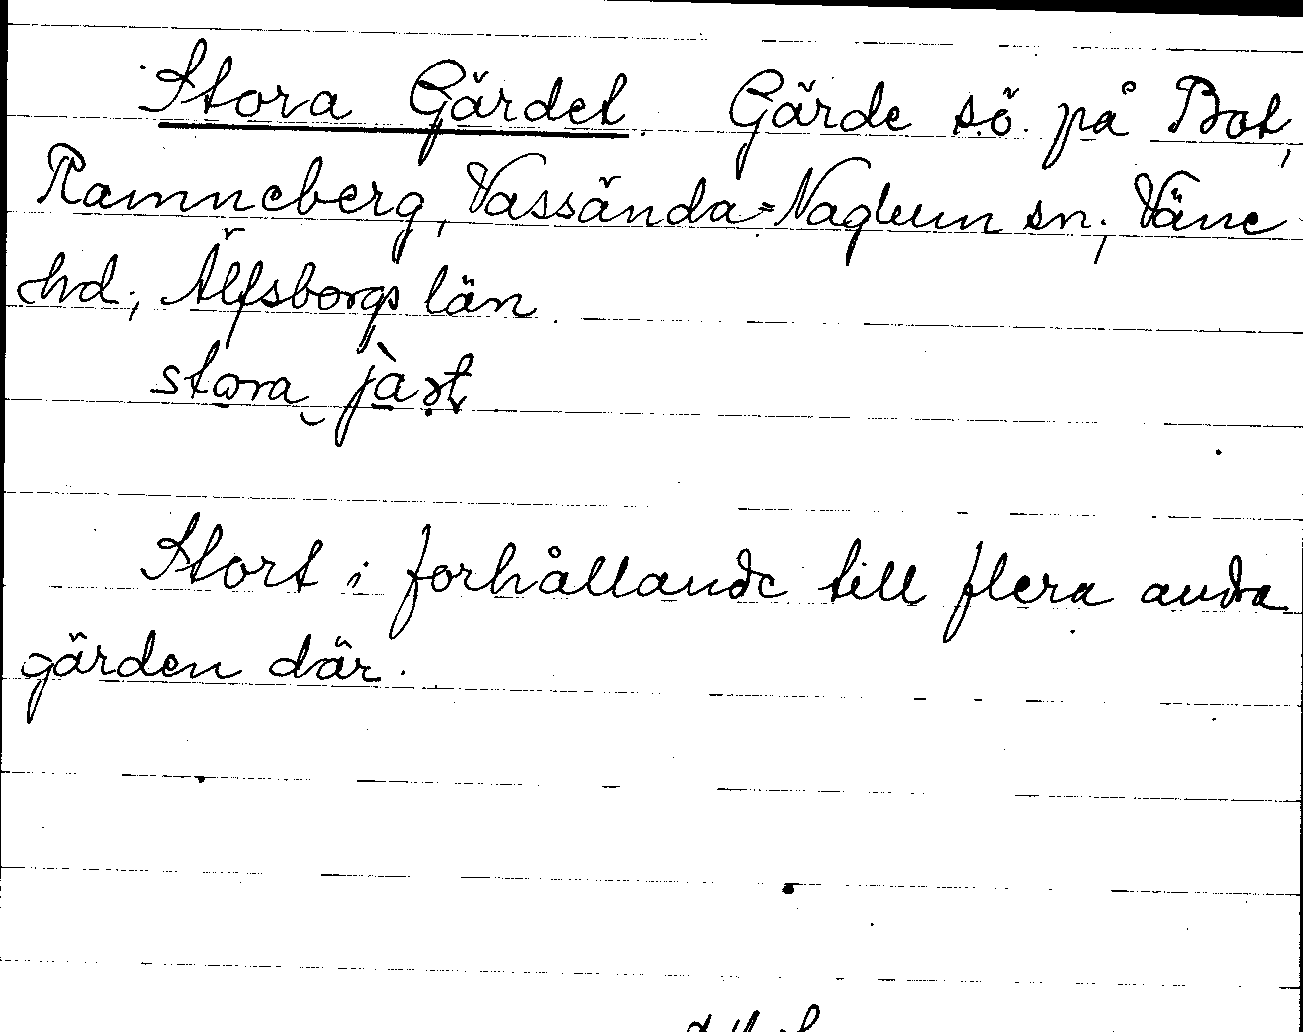 Stora Gärdet. Gärde sö. på Bot,
Ramneberg, Vassända-Naglum sn., Väne
hd., Älfsborgs län
stora jàrt
Stort i förhållande till flera andra
gärden där.